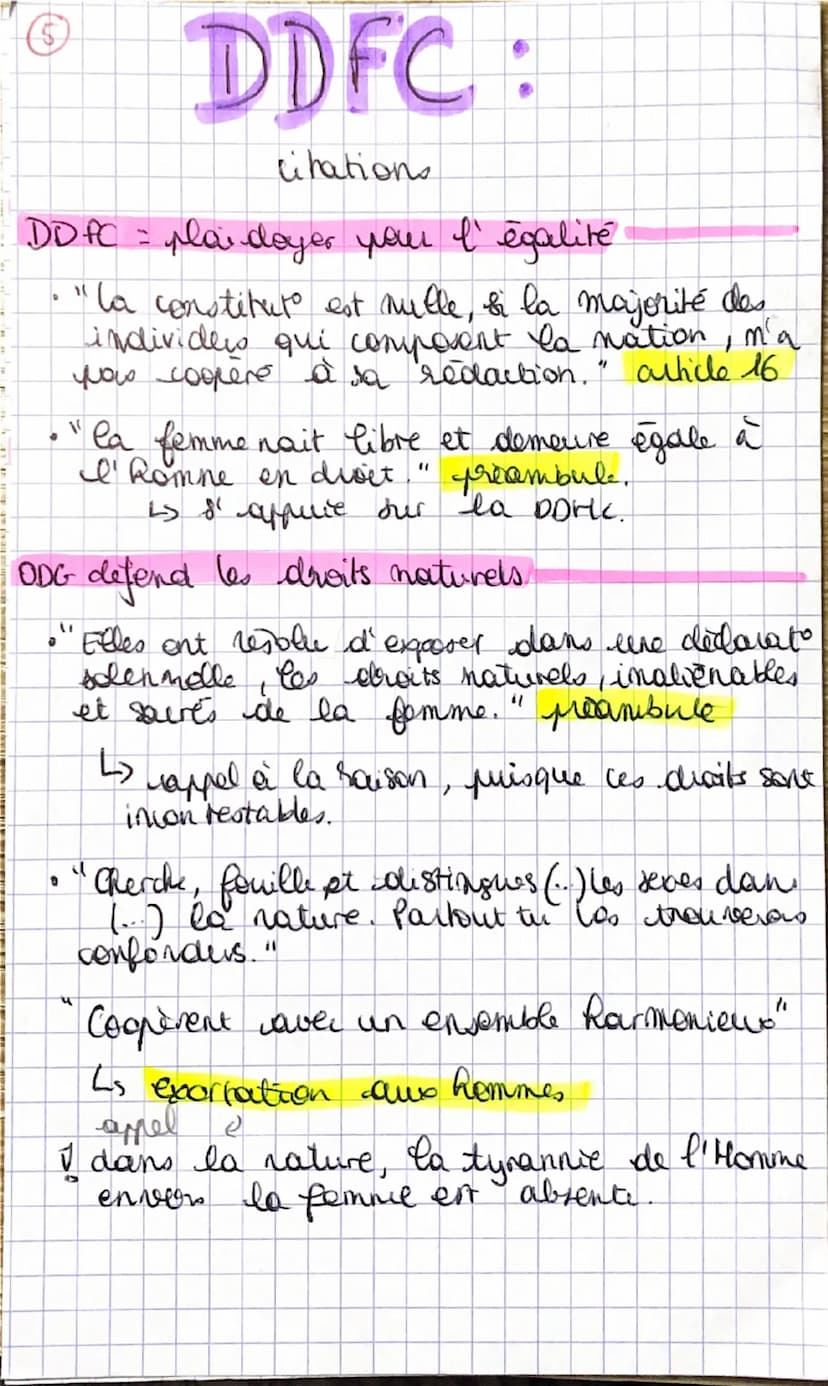 5
DDFC :
citations
DDFC = plaidoyer pour l'égalité
• "la constitut° est nulle, si la majorité des
individus qui composent la nation, n'a
pas coopéré à sa rédaction." article 16
• "la femme nait libre et demeure égale à
l'homme en droit." préambule.
↳ s'appuie sur la DDHC.
ODG défend les droits naturels
• "Elles ont résolu d'exposer dans une déclarat°
solennelle, les droits naturels, inaliénables
et sacrés de la femme." préambule
↳ rappel à la raison, puisque ces droits sont
incontestables.
• "Cherche, fouille et distingues (..) les sexes dans
(...) la nature. Partout tu les trouveras
confondus."
"Coopèrent avec un ensemble harmonieux"
↳ exortation aux hommes
appel
! dans la nature, la tyrannie de l'Homme
envers la femme est absente.